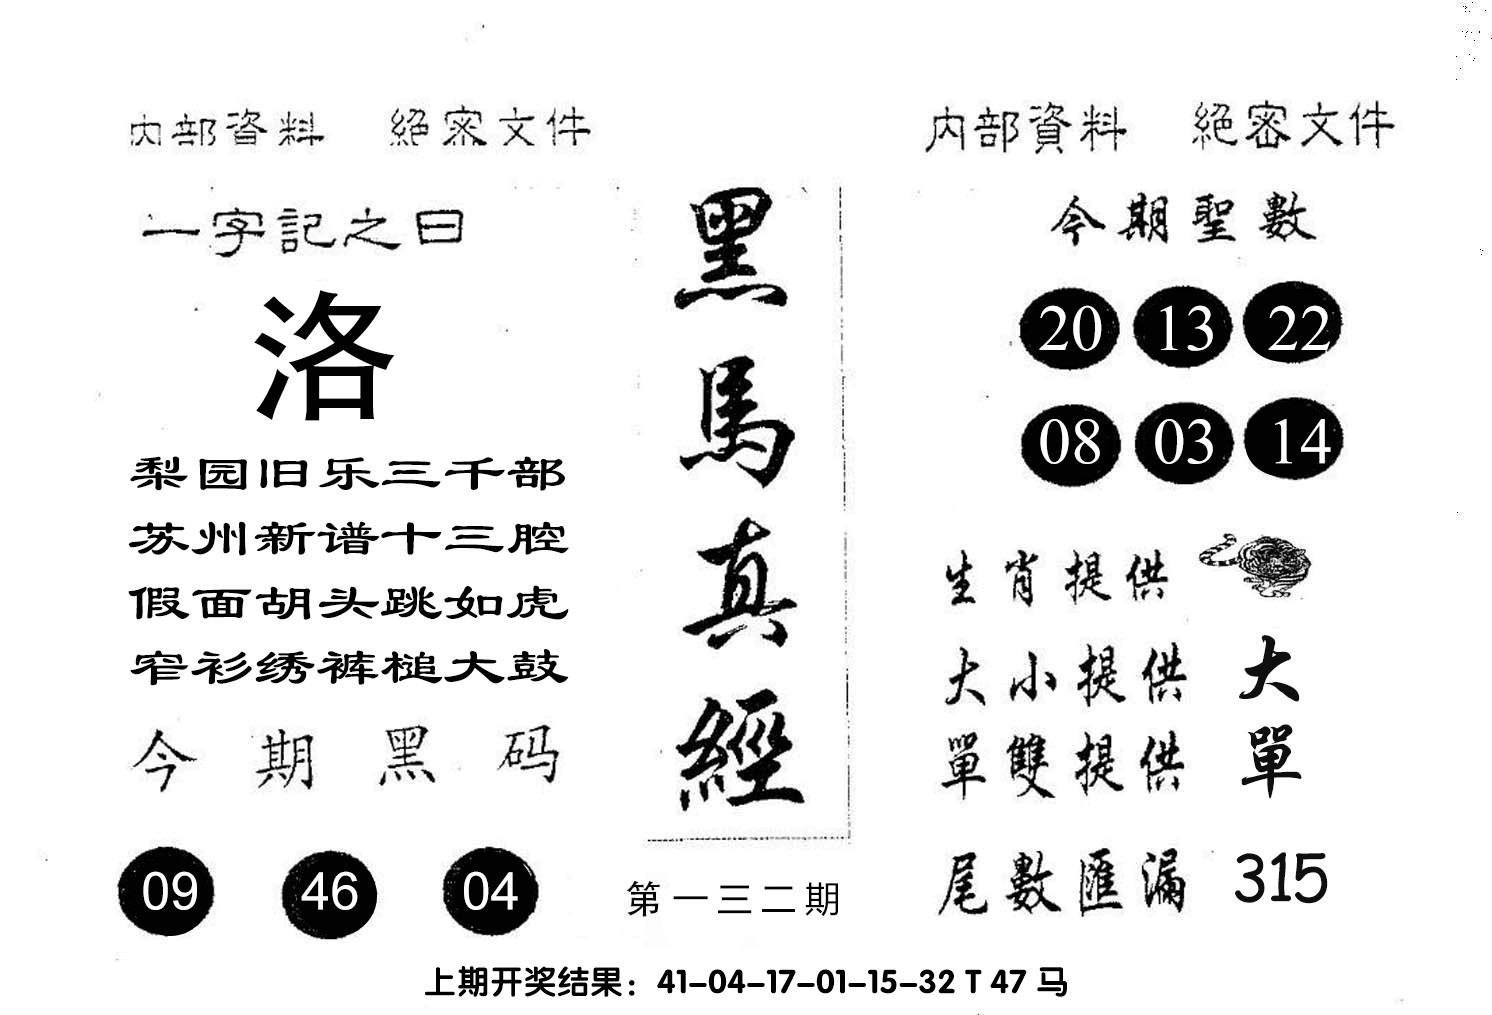 内部資料 絕密文件
一字記之曰
洛
梨园旧乐三千部
苏州新谱十三腔
假面胡头跳如虎
窄衫绣裤槌大鼓
今期黑码
09 46 04
黑馬真經
第一三二期
内部資料 絕密文件
今期聖數
20 13 22
08 03 14
生肖提供
大小提供 大
單雙提供 單
尾數匯漏 315
上期开奖结果：41-04-17-01-15-32 T 47 马